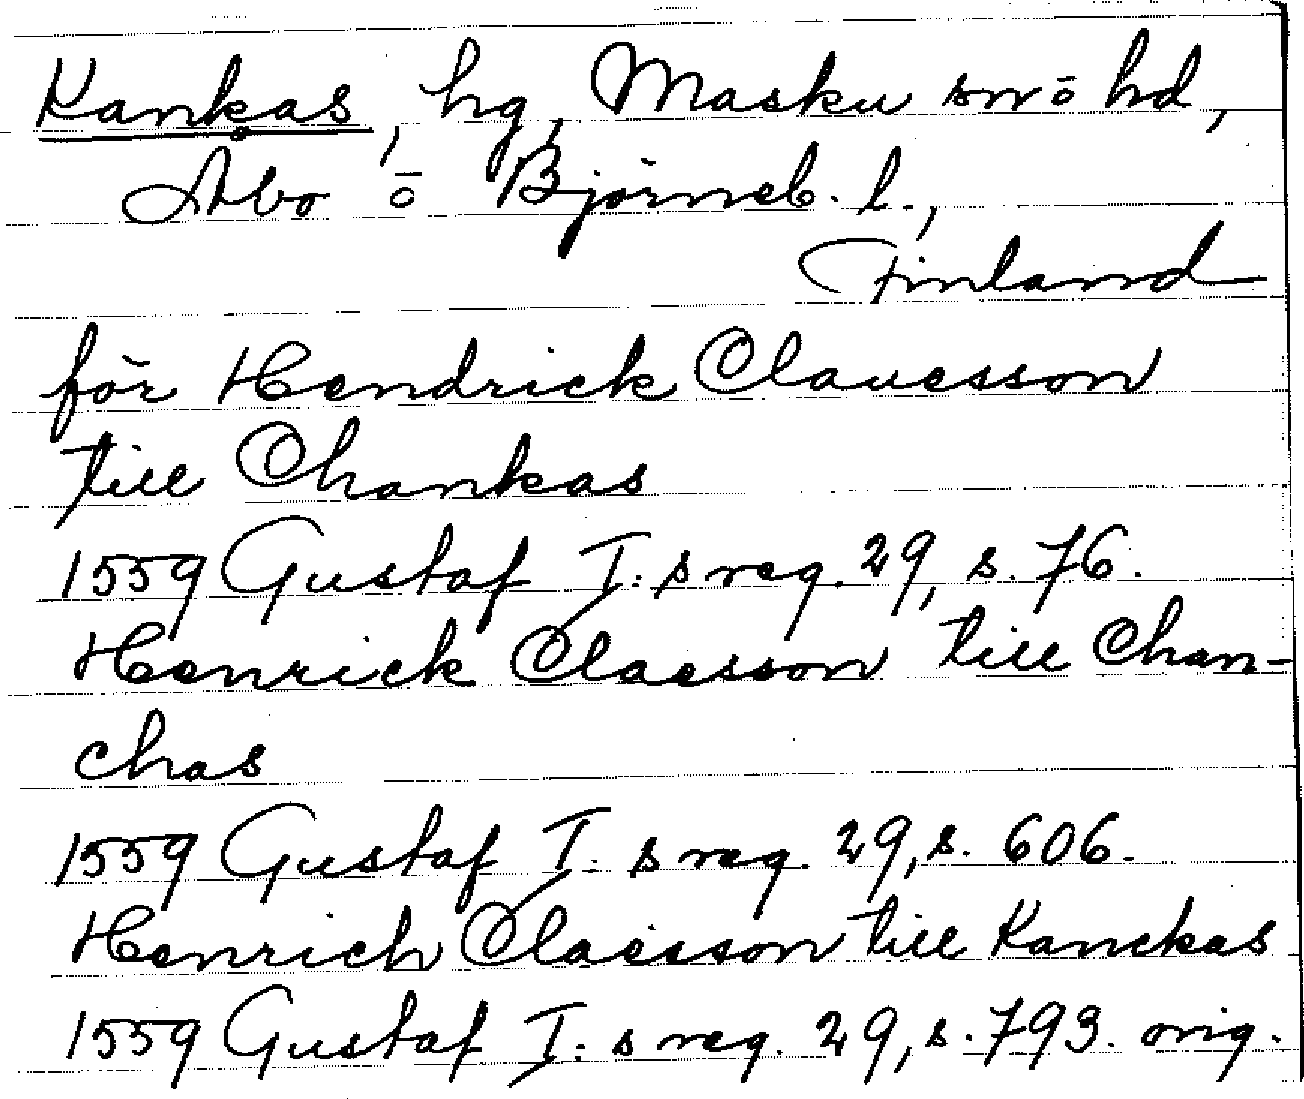 Kankas, hg, Masku sn o hd,
Åbo o Björneb. l.,
Finland
för Hendrick Clauesson
till Chankas
1559 Gustaf I:s reg. 29, s. 76.
Henrick Claesson till Chan-
chas
1559 Gustaf I:s reg. 29, s. 606.
Henrich Claesson till Kanckas
1559 Gustaf I:s reg. 29, s. 793. orig.